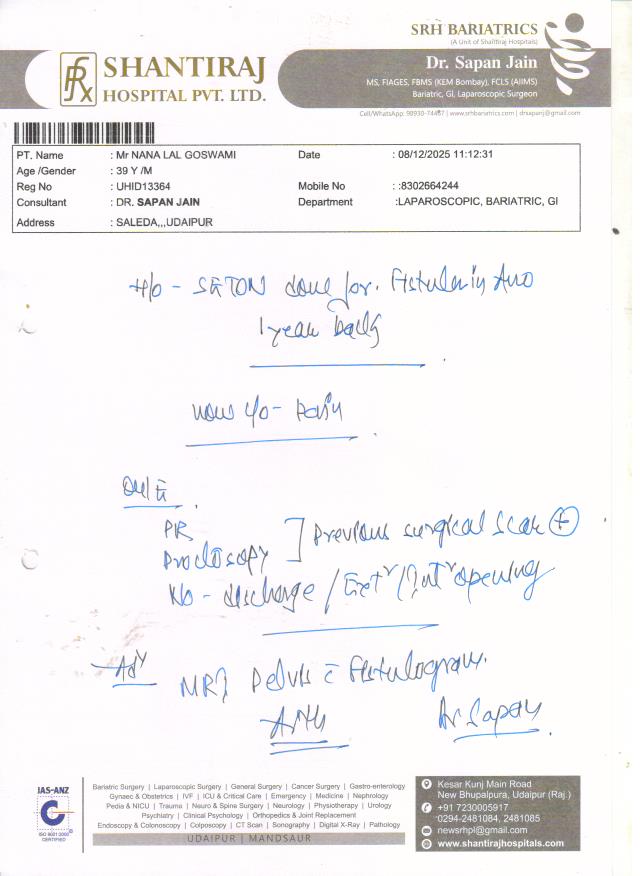 SRH BARIATRICS
(A Unit of Shantiraj Hospitals)
Dr. Sapan Jain
MS, FIAGES, FBMS (KEM Bombay), FCLS (AIIMS)
Bariatric, GI, Laparoscopic Surgeon
SHANTIRAJ
HOSPITAL PVT. LTD.
Cell/WhatsApp: 98930-74487 | www.srhbariatrics.com | drsapanj@gmail.com
PT. Name : Mr NANA LAL GOSWAMI Date : 08/12/2025 11:12:31
Age /Gender : 39 Y /M
Reg No : UHID13364 Mobile No : :8302664244
Consultant : DR. SAPAN JAIN Department :LAPAROSCOPIC, BARIATRIC, GI
Address : SALEDA,,,UDAIPUR
H/o - SETON done for. Fistula in Ano
1 year back
now c/o - Pain
O/E
PR
Proctoscopy ] Previous surgical scar +
No - discharge / Extr / Intr opening
Adv
MRI Pelvis c Fistulogram.
Dr Sapan
IAS-ANZ
ISO 9001:2000
CERTIFIED
Bariatric Surgery | Laparoscopic Surgery | General Surgery | Cancer Surgery | Gastro-enterology
Gynaec & Obstetrics | IVF | ICU & Critical Care | Emergency | Medicine | Nephrology
Pedia & NICU | Trauma | Neuro & Spine Surgery | Neurology | Physiotherapy | Urology
Psychiatry | Clinical Psychology | Orthopedics & Joint Replacement
Endoscopy & Colonoscopy | Colposcopy | CT Scan | Sonography | Digital X-Ray | Pathology
UDAIPUR | MANDSAUR
Kesar Kunj Main Road
New Bhupalpura, Udaipur (Raj.)
+91 7230005917
0294-2481084, 2481085
newsrhpl@gmail.com
www.shantirajhospitals.com